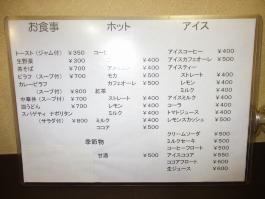 お食事
トースト(ジャム付) ¥350
生野菜 ¥300
茶そば ¥700
ピラフ(スープ付) ¥700
カレーピラフ
(スープ付) ¥800
中華丼(スープ付) ¥700
皿うどん ¥700
スパゲティ ナポリタン
(サラダ付) ¥800
ホット
コーヒ
¥400
モカ ¥400
カフェオーレ ¥500
紅茶
ストレート ¥400
レモン ¥400
ミルク ¥400
ミルク ¥400
ココア ¥500
季節物
甘酒 ¥500
アイス
アイスコーヒー ¥400
アイスカフェオーレ ¥500
アイスティー
ストレート ¥400
レモン ¥400
ミルク ¥400
アイスミルク ¥400
コーラ ¥400
トマトジュース ¥400
レモンスカッシュ ¥500
クリームソーダ ¥500
ミルクセーキ ¥500
コーヒーフロート ¥500
アイスココア ¥550
ココアフロート ¥600
生ジュース ¥600